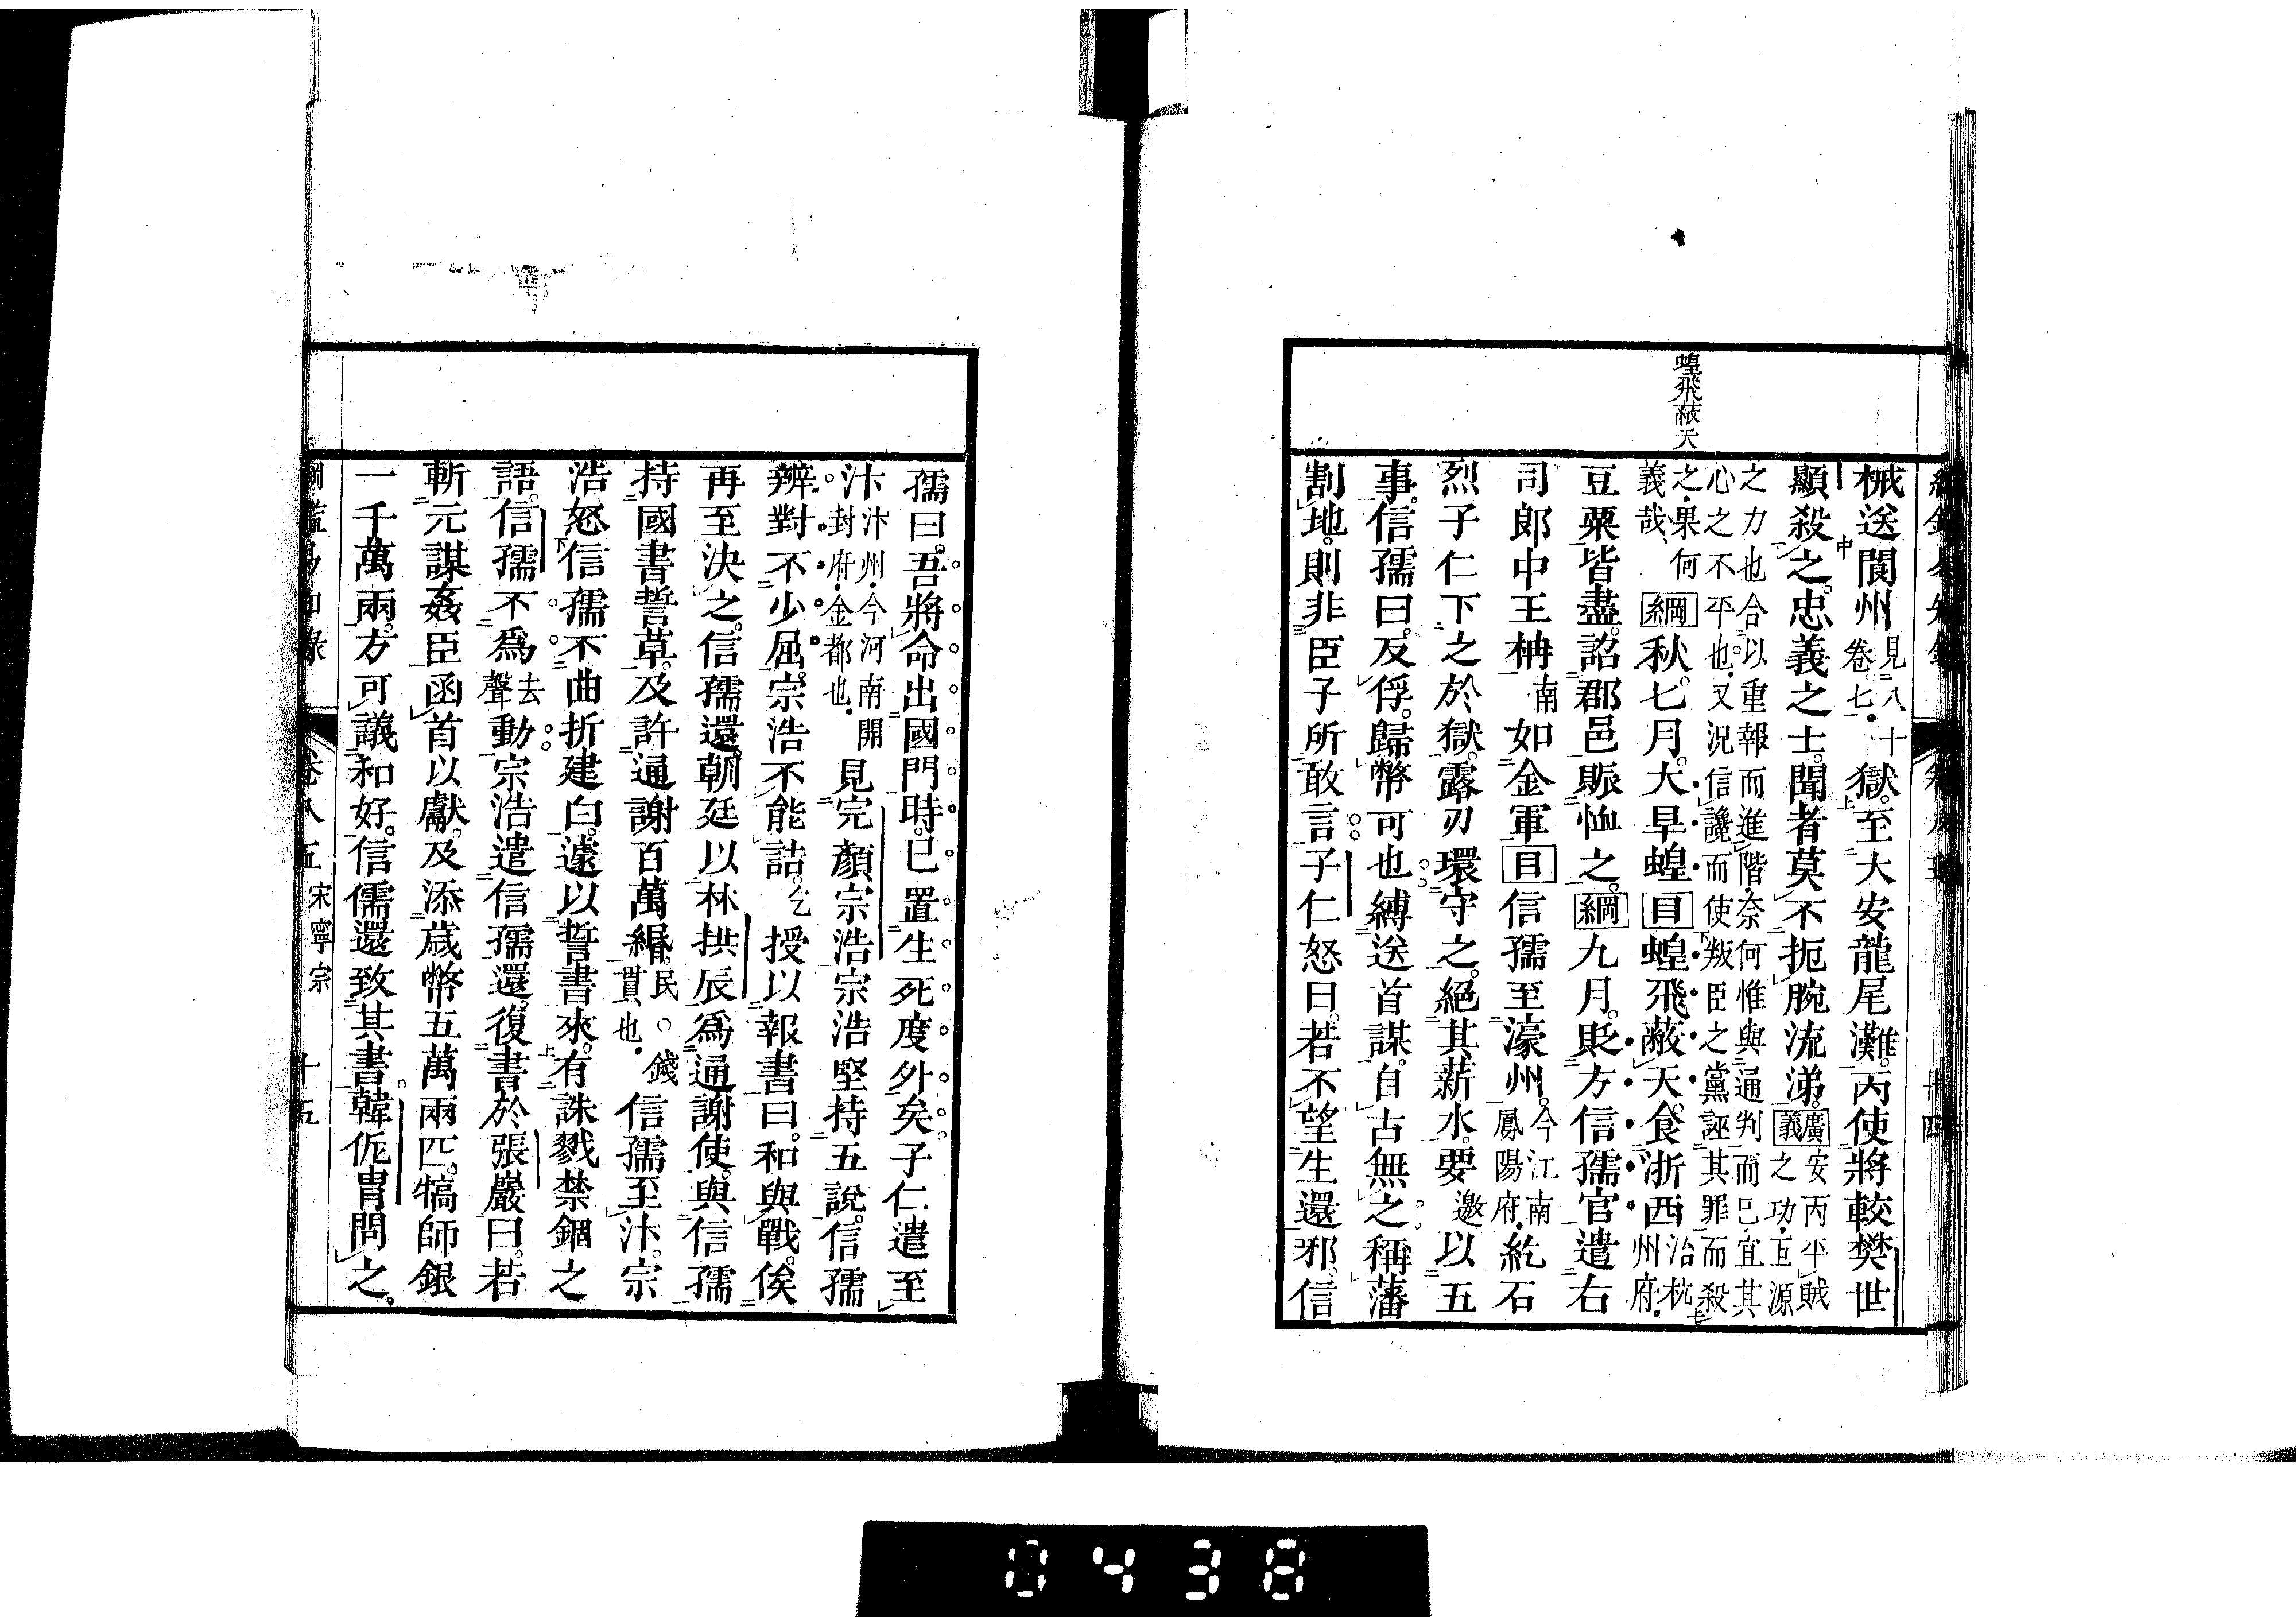 蝗飛蔽天
械送閬州見八十卷七獄。至大安龍尾灘。丙使將較樊世
顯殺之。忠義之士。聞者莫不扼腕流涕。廣義安丙平賊之功。亙源
之力也合以重報而進階。奈何惟與通判而已。宜其
心之不平也。又況信讒而使叛臣之黨誣其罪而殺
之。果何義哉、綱秋七月。大旱蝗目蝗飛蔽天。食浙西治杭州府。
豆粟皆盡。詔郡邑賑恤之。綱九月。貶方信孺官遣右
司郎中王柟南如金軍目信孺至濠州。今江南鳳陽府。紇石
烈子仁下之於獄。露刃環守之。絕其薪水。要邀以五
事。信孺曰。反俘。歸幣可也縛送首謀。自古無之稱藩
割地。則非臣子所敢言子仁怒曰。若不望生還邪。信
孺曰。吾將命出國門時。已置生死度外矣子仁遣至
汴汴州。今河南開封府。金都也。見完顏宗浩宗浩堅持五說。信孺
辨對不少屈。宗浩不能詰。乞授以報書曰。和與戰。俟
再至決之。信孺還。朝廷以林拱辰爲通謝使。與信孺
持國書誓草。及許通謝百萬緡。民。錢貫也。信孺至汴。宗
浩怒信孺不曲折建白。遽以誓書來。有誅戮禁錮之
語。信孺不爲去聲動宗浩遣信孺還。復書於張巖曰。若
斬元謀姦臣函首以獻。及添歲幣五萬兩匹。犒師銀
一千萬兩。方可議和好。信儒還致其書。韓侂冑問之。
綱鑑易知錄 卷八五 宋寧宗 十五